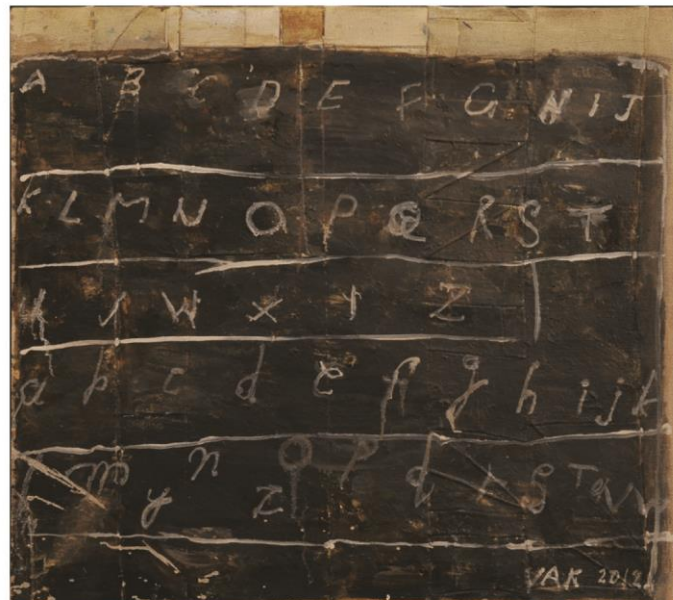 A B C D E F G H I J
K L M N O P Q R S T
V W X Y Z
a b c d e f g h i j k
m n o p q x S T
y z